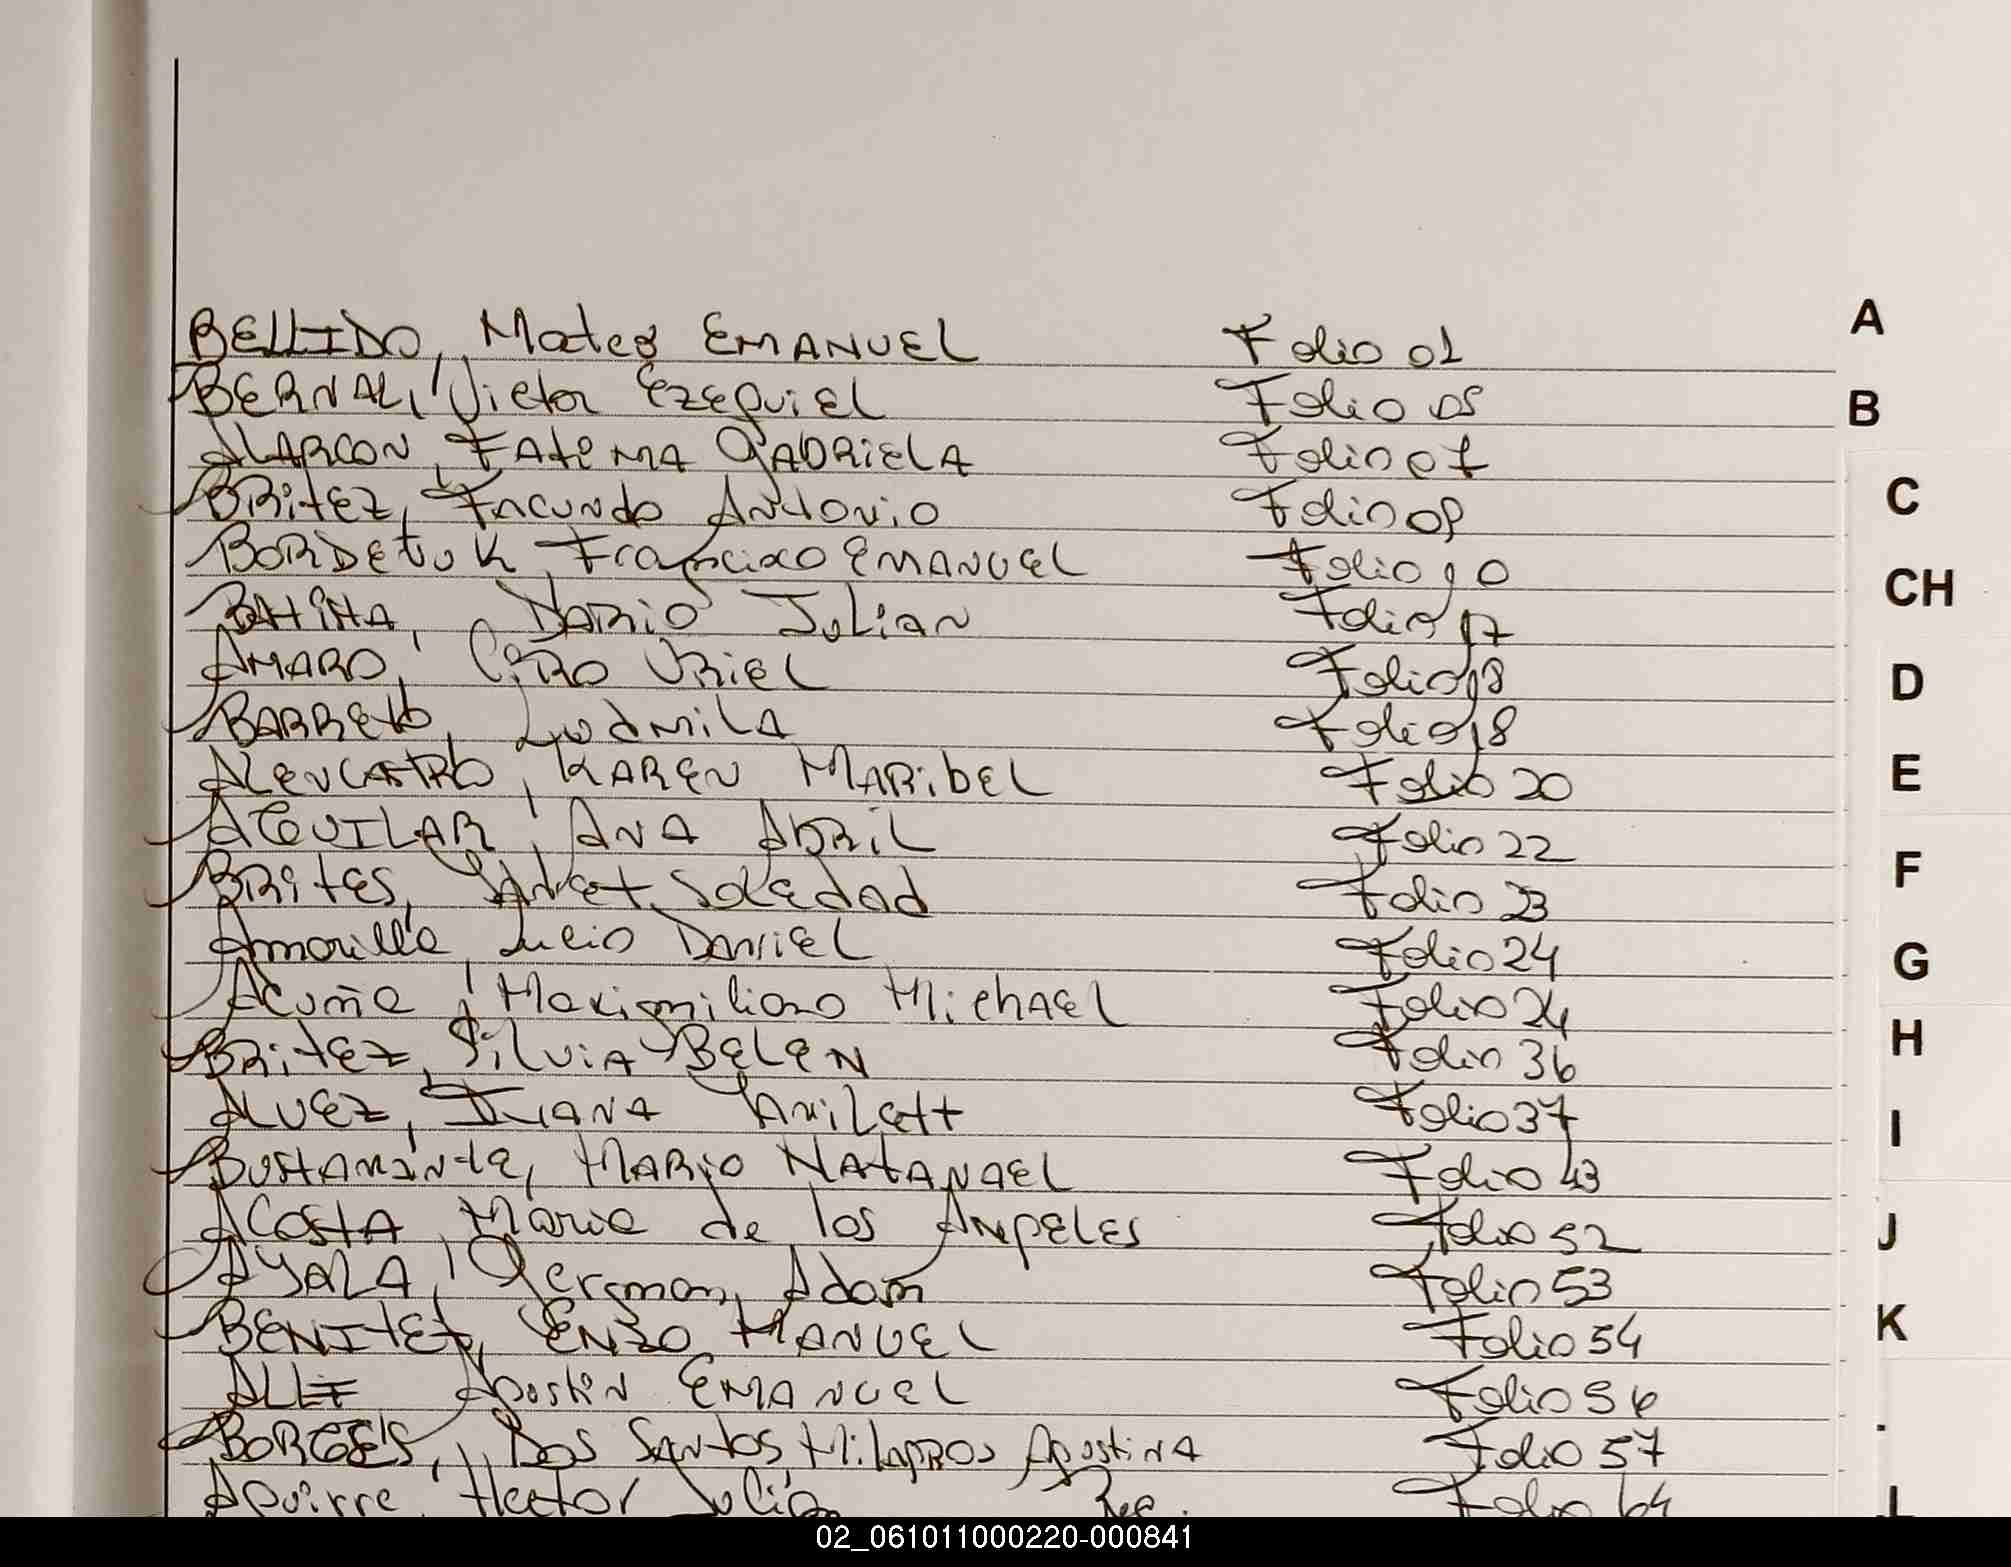 BELLIDO, Mateo EMANUEL Folio 01 A
BERNAL, Victor Ezequiel Folio 05 B
ALARCON, Fatima Gabriela Folio 07
BRitez, Facundo Antonio Folio 09 C
BORDEtuk Francisco EMANUEL Folio 10
Dario Julian Folio 17 CH
AMARO, Ciro Uriel Folio 18
BARRETO, Ludmila Folio 18 D
ALENCASTRO, KAREN MARibEL Folio 20 E
AGUILAR, ANA Abril Folio 22
BRites, Soledad Folio 23 F
Amarilla, Lucio Daniel Folio 24 G
Acuña, Maximiliano Michael Folio 24
BRitez, Silvia BELEN Folio 36 H
ALVEZ, Folio 37 I
BUSTAMANTE, MARio NATANAEL Folio 43
ACOSTA, Maria de los ANgELES Folio 52 J
AYALA, German Adam Folio 53
BENITEZ, ENZO MANUEL Folio 54 K
Agostin EMANUEL Folio 56
BORGES, Dos SANtos Milagros Agostina Folio 57
Aguirre, Hector Julian Rec. Folio 64 L
02_061011000220-000841